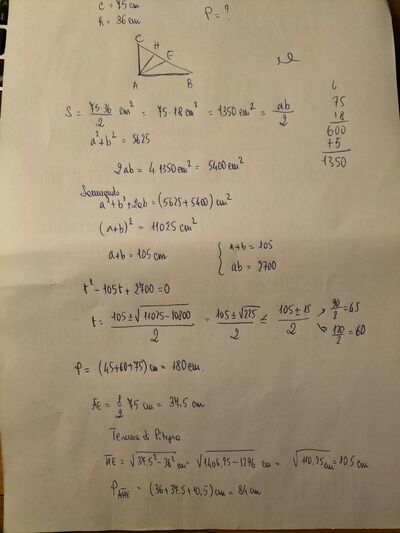 C = 75cm
h = 36cm
P = ?
C
H
E
A
B
S = 75·36/2 cm² = 75·18 cm² = 1350 cm² = ab/2
75
18
600
75
1350
a² + b² = 5625
2ab = 4·1350cm² = 5400cm²
Sommando
a² + b² + 2ab = (5625 + 5400) cm²
(a+b)² = 11025 cm²
a+b = 105 cm
{ a+b = 105
ab = 2700
t² - 105t + 2700 = 0
t = 105 ± √11025 - 10800 / 2 = 105 ± √225 / 2 = 105 ± 15 / 2
90/2 = 45
120/2 = 60
P = (45+60+75) cm = 180 cm.
AE = 1/2 75 cm = 37.5 cm
Teorema di Pitagora
HE = √37.5² - 36² cm = √1406.25 - 1296 cm = √110.25 cm = 10.5 cm
P AHE = (36 + 37.5 + 10.5) cm = 84 cm